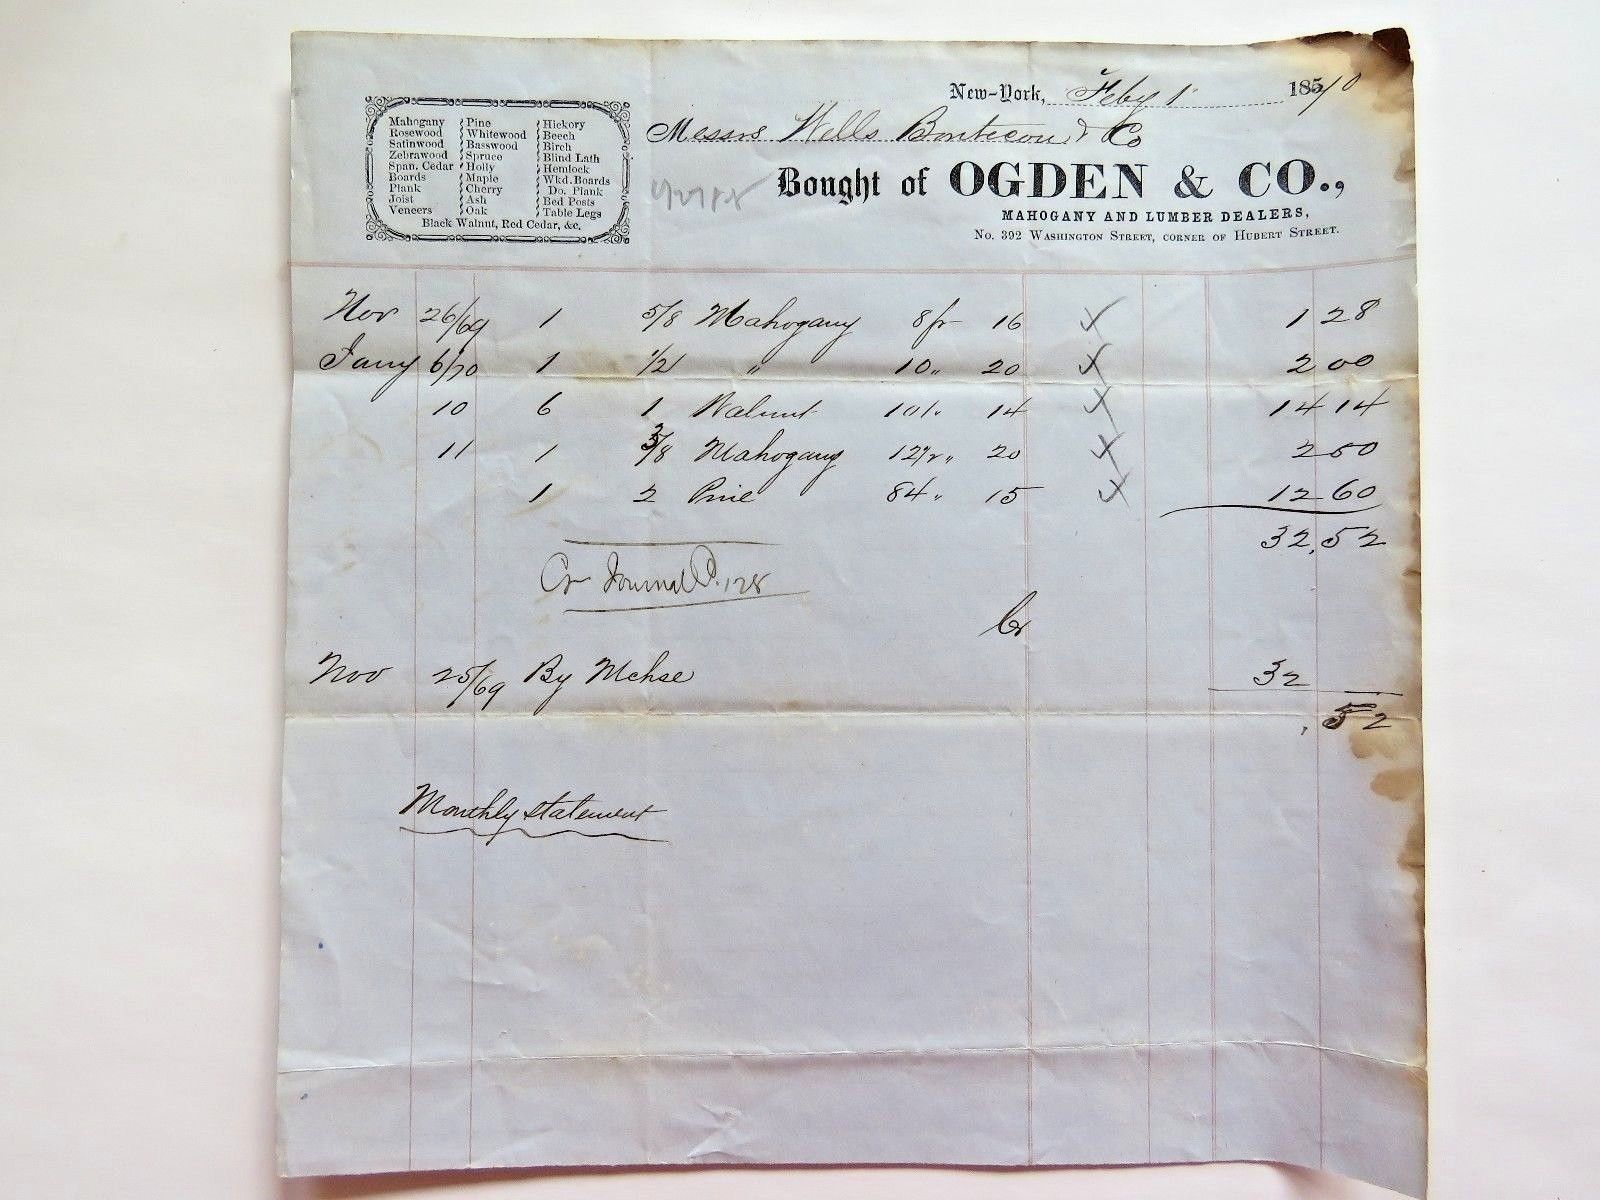 New-York, Feby 1 1870
Messrs Wells Bontecou & Co
Bought of OGDEN & CO.,
MAHOGANY AND LUMBER DEALERS,
No. 392 Washington Street, corner of Hubert Street.
Mahogany Pine Hickory
Rosewood Whitewood Beech
Satinwood Basswood Birch
Zebrawood Spruce Blind Lath
Span. Cedar Holly Hemlock
Boards Maple Wkd. Boards
Plank Cherry Do. Plank
Joist Ash Bed Posts
Veneers Oak Table Legs
Black Walnut, Red Cedar, &c.
Nov 26/69 1 5/8 Mahogany 8 ft 16 1 28
Jany 6/70 1 1/2 " 10 " 20 2 00
10 6 1 Walnut 101 " 14 14 14
11 1 3/8 Mahogany 12 1/2 " 20 2 50
1 2 Pine 84 " 15 12 60
32,52
Cr Journal P. 128
Cr
Nov 25/69 By Mchse 32
.52
Monthly statement